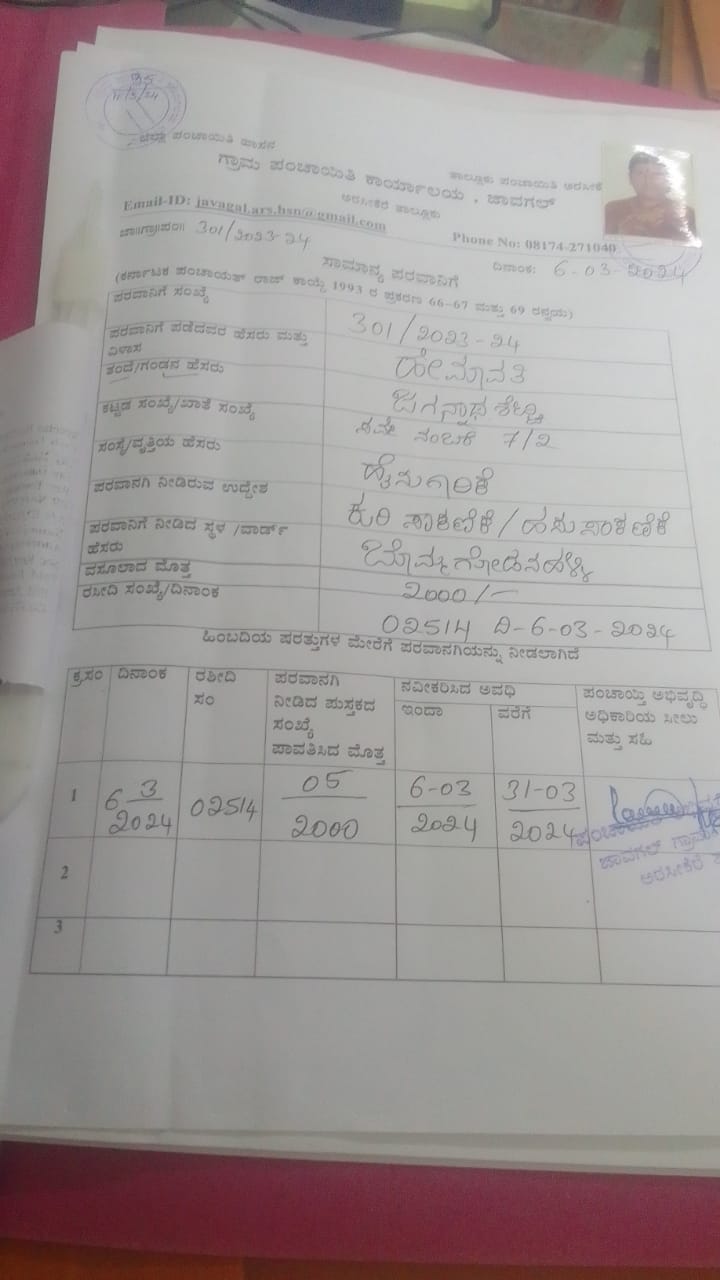 85
11/3/24
ಜಿಲ್ಲಾ ಪಂಚಾಯಿತಿ ಹಾಸನ
ತಾಲ್ಲೂಕು ಪಂಚಾಯಿತಿ ಅರಸೀಕೆ
ಗ್ರಾಮ ಪಂಚಾಯಿತಿ ಕಾರ್ಯಾಲಯ , ಜಾವಗಲ್
ಅರಸೀಕೆರೆ ತಾಲ್ಲೂಕು
Email-ID: javagal.ars.hsn@gmail.com
Phone No: 08174-271040
ಜಾ||ಗ್ರಾ||ಪಂ|| 301/2023-24
ದಿನಾಂಕ: 6-03-2024
ಸಾಮಾನ್ಯ ಪರವಾನಿಗೆ
(ಕರ್ನಾಟಕ ಪಂಚಾಯತ್ ರಾಜ್ ಕಾಯ್ದೆ 1993 ರ ಪ್ರಕರಣ 66-67 ಮತ್ತು 69 ರನ್ವಯ)
ಪರವಾನಿಗೆ ಸಂಖ್ಯೆ 301/2023-24
ಪರವಾನಿಗೆ ಪಡೆದವರ ಹೆಸರು ಮತ್ತು ವಿಳಾಸ ಹೇಮಾವತಿ
ತಂದೆ/ಗಂಡನ ಹೆಸರು ಜಗನ್ನಾಥ ಶೆಟ್ಟಿ
ಕಟ್ಟಡ ಸಂಖ್ಯೆ/ಖಾತೆ ಸಂಖ್ಯೆ ಸರ್ವೇ ನಂಬರ್ 7/2
ಸಂಸ್ಥೆ/ವೃತ್ತಿಯ ಹೆಸರು ಹೈನುಗಾರಿಕೆ
ಪರವಾನಗಿ ನೀಡಿರುವ ಉದ್ದೇಶ ಕುರಿ ಸಾಕಣಿಕೆ / ಹಸು ಸಾಕಣಿಕೆ
ಪರವಾನಿಗೆ ನೀಡಿದ ಸ್ಥಳ /ವಾರ್ಡ್ ಹೆಸರು ಬೊಮ್ಮಗೋಡನಹಳ್ಳಿ
ವಸೂಲಾದ ಮೊತ್ತ 2000/-
ರಶೀದಿ ಸಂಖ್ಯೆ/ದಿನಾಂಕ 02514 ದಿ-6-03-2024
ಹಿಂಬದಿಯ ಷರತ್ತುಗಳ ಮೇರೆಗೆ ಪರವಾನಗಿಯನ್ನು ನೀಡಲಾಗಿದೆ
ಕ್ರ.ಸಂ ದಿನಾಂಕ ರಶೀದಿ ಸಂ ಪರವಾನಗಿ ನೀಡಿದ ಪುಸ್ತಕದ ಸಂಖ್ಯೆ ಪಾವತಿಸಿದ ಮೊತ್ತ ನವೀಕರಿಸಿದ ಅವಧಿ ಇಂದಾ ವರೆಗೆ ಪಂಚಾಯ್ತಿ ಅಭಿವೃದ್ಧಿ ಅಧಿಕಾರಿಯ ಸೀಲು ಮತ್ತು ಸಹಿ
1 6 3/2024 02514 05/2000 6-03/2024 31-03/2024
ಜಾವಗಲ್ ಗ್ರಾಮ
ಅರಸೀಕೆರೆ
2
3